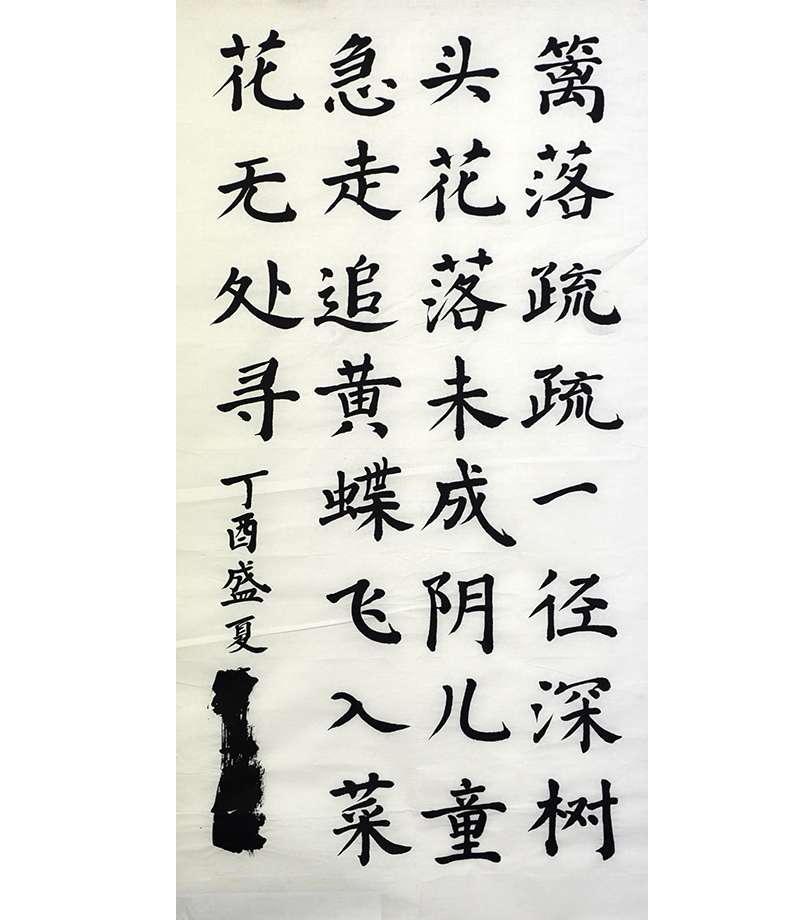 篱落疏疏一径深树
头花落未成阴儿童
急走追黄蝶飞入菜
花无处寻
丁酉盛夏